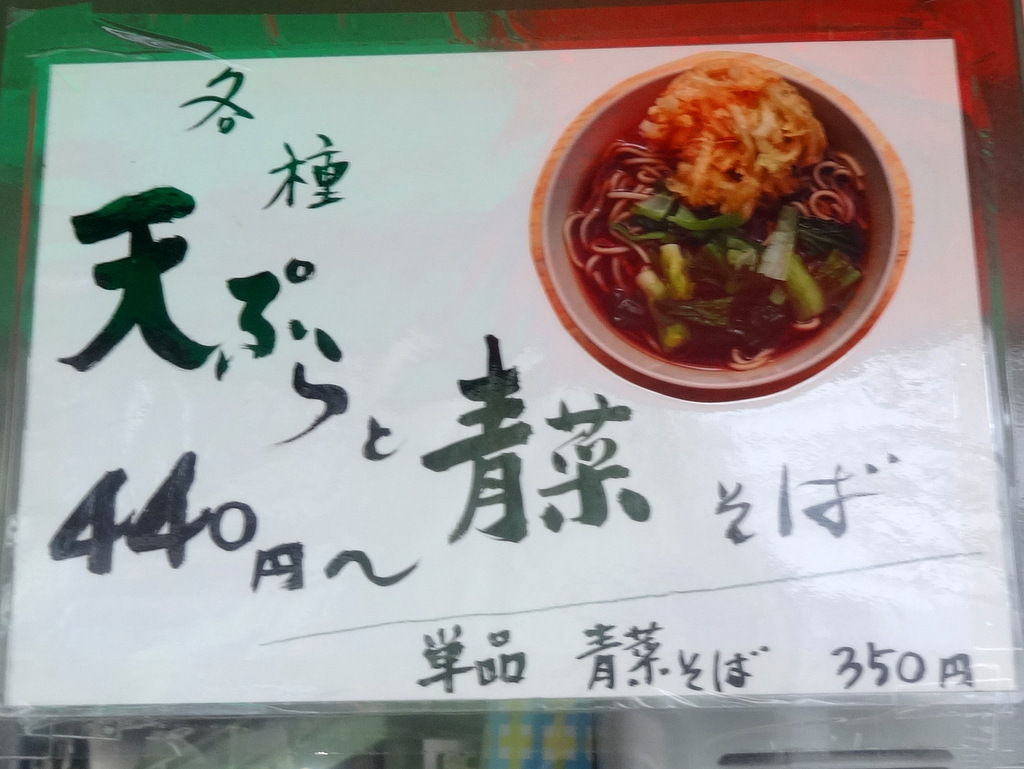 各種
天ぷらと青菜そば
440円～
単品 青菜そば 350円